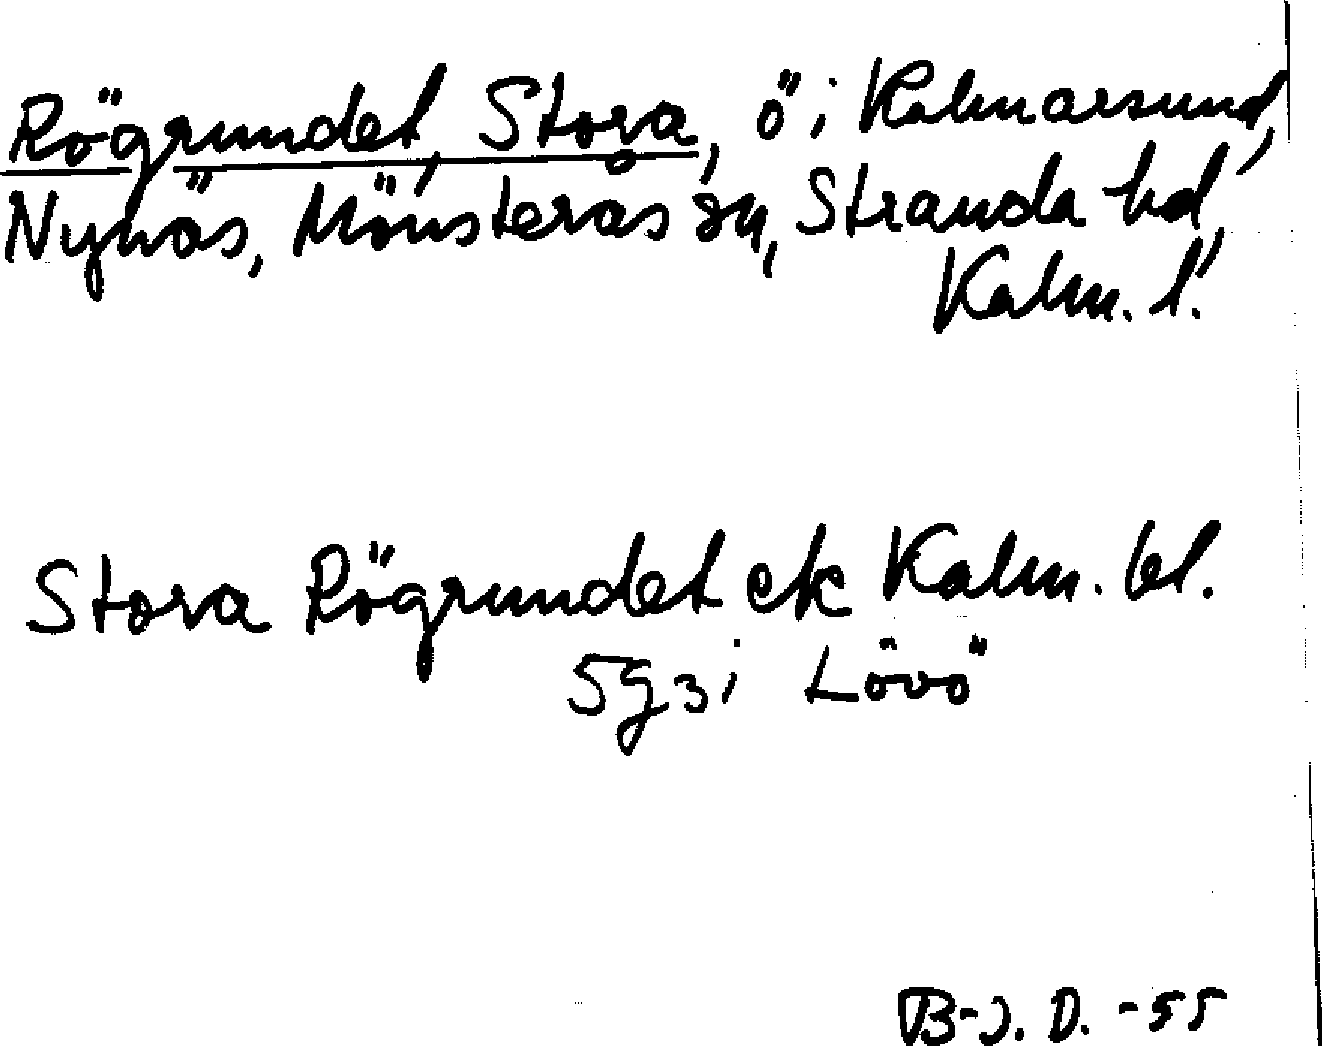 Rögrundet, Stora, ö i Kalmarsund,
Nynäs, Mönsterås sn, Stranda hd,
Kalm. l.
Stora Rögrundet ek Kalm. bl.
5g3i Lövö
B-J. D. -55